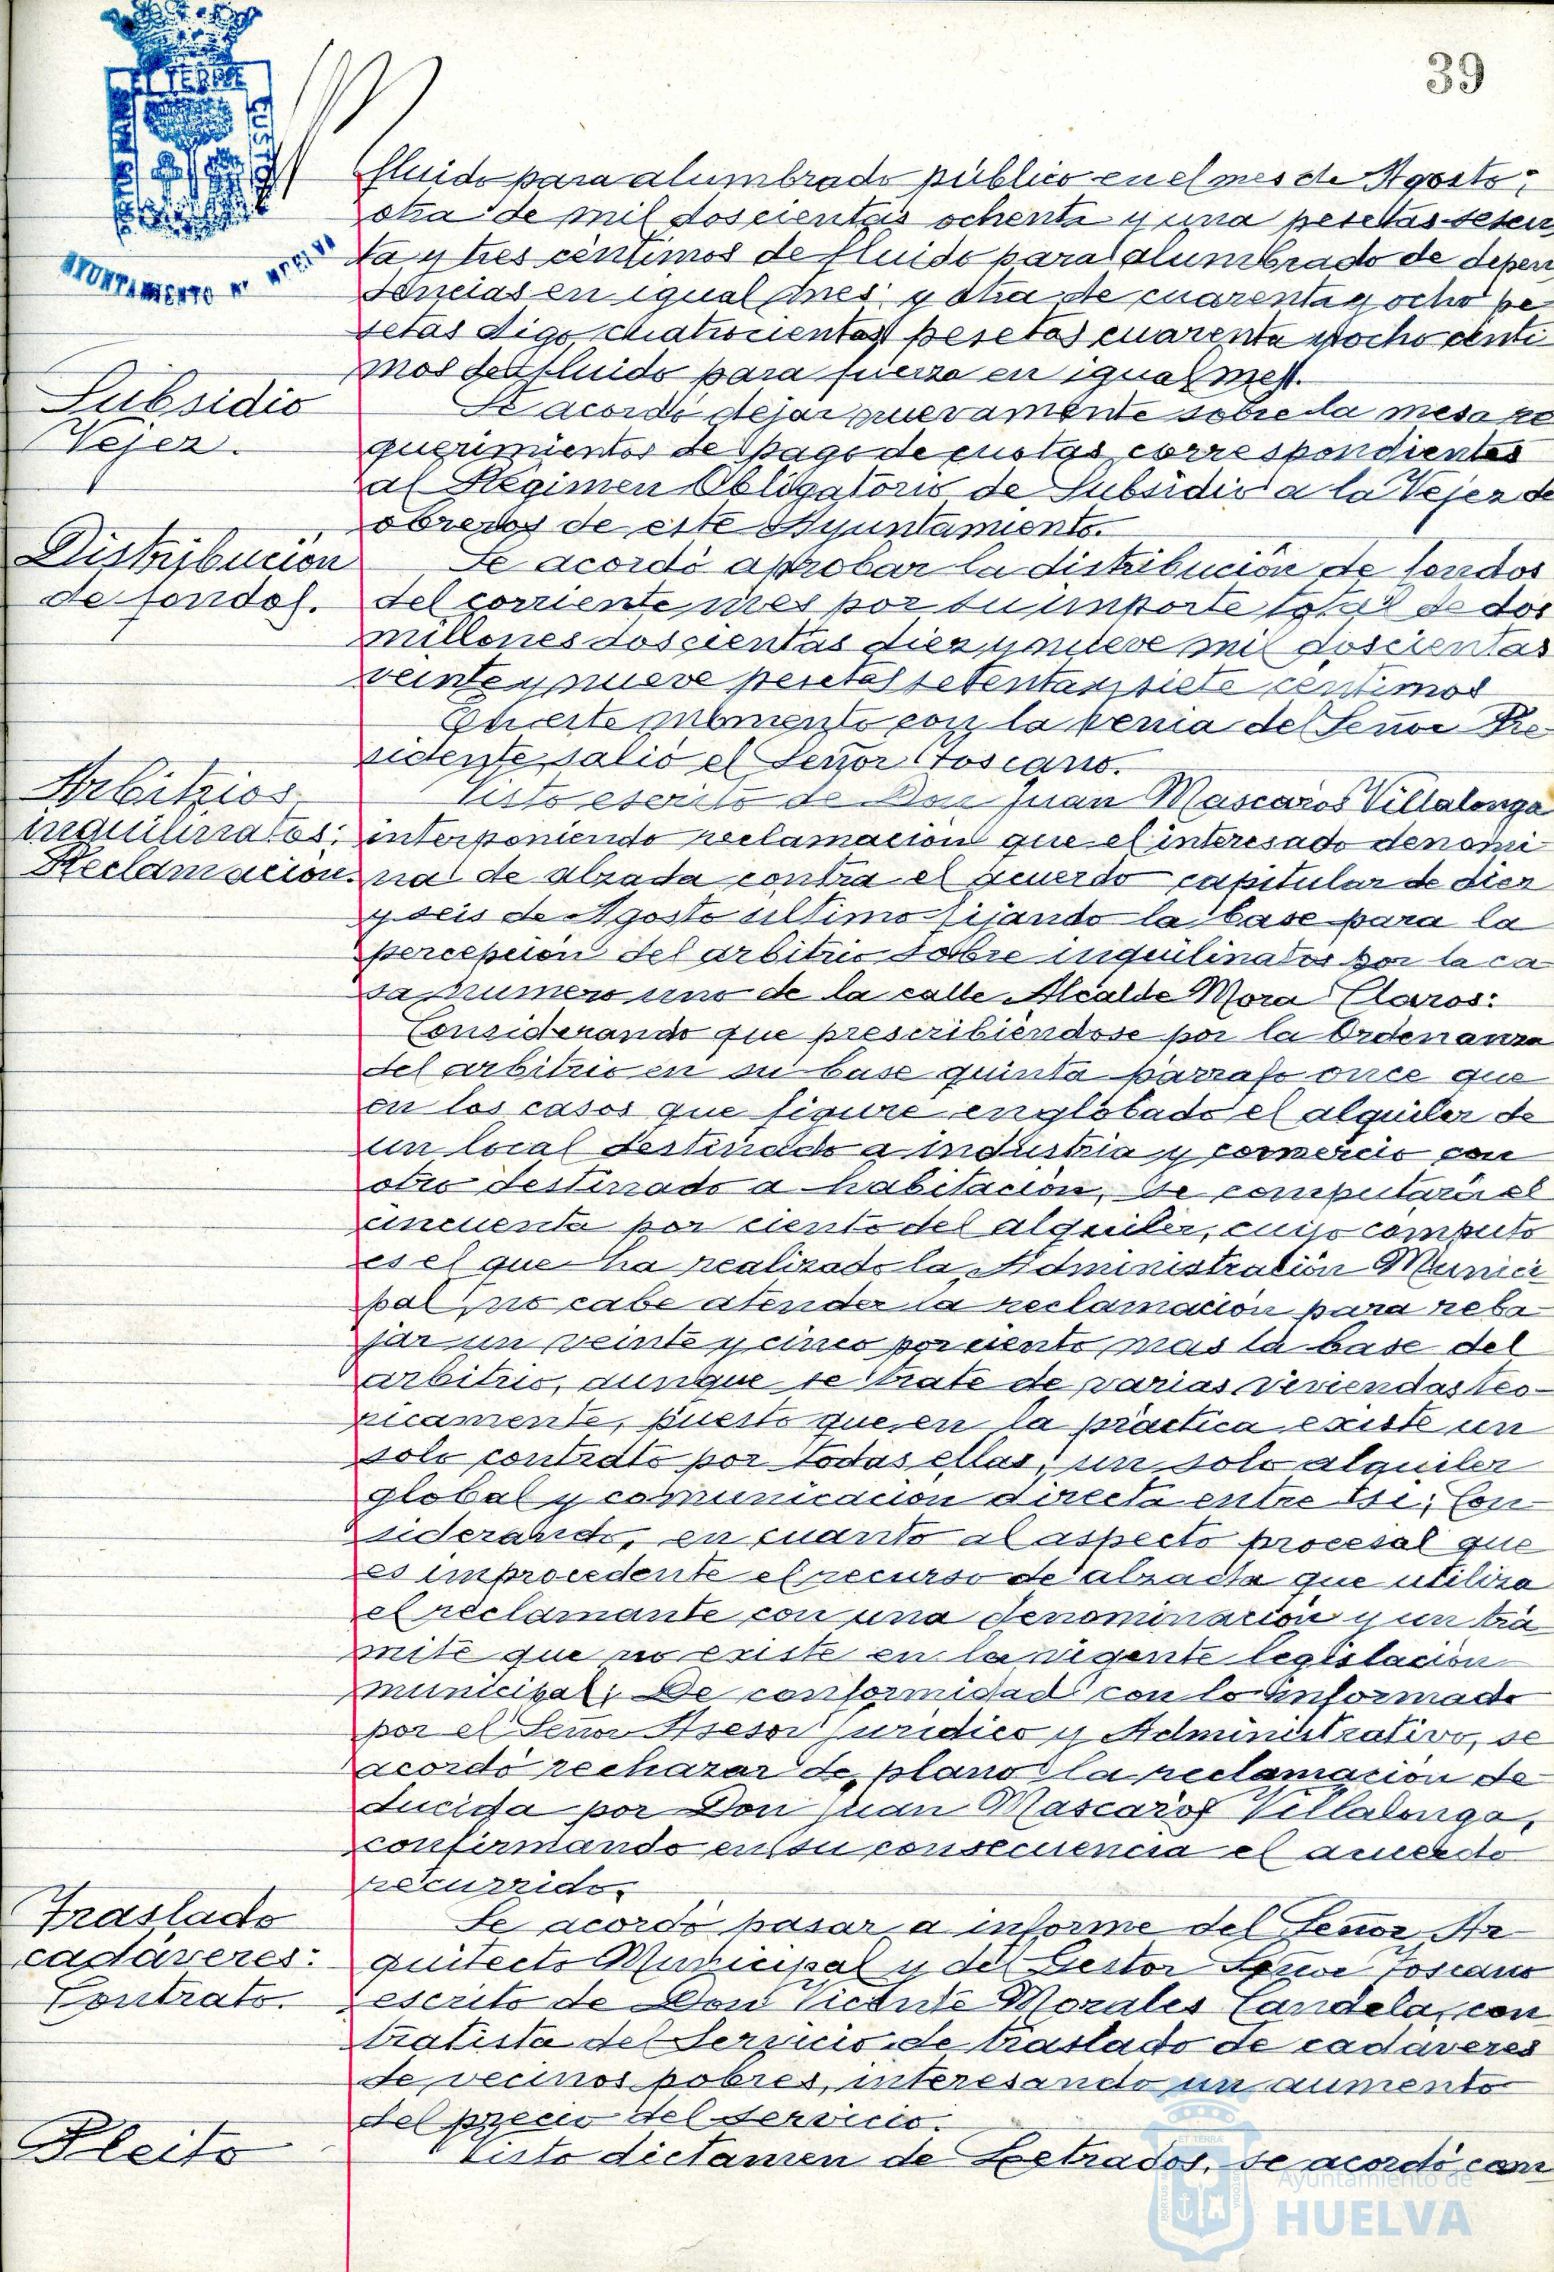 39
fluido para alumbrado público en el mes de Agosto;
otra de mil doscientas ochenta y una pesetas seten
ta y tres céntimos de fluido para alumbrado de depen
dencias en igual mes y otra de cuarenta y ocho pe
setas digo cuatrocientas pesetas cuarenta y ocho cénti
mos de fluido para fuerza en igual mes.
Subsidio
Vejez.
Se acordó dejar nuevamente sobre la mesa re
querimientos de pago de cuotas correspondientes
al Régimen Obligatorio de Subsidio a la Vejez de
obreros de este Ayuntamiento.
Distribución
de fondos.
Se acordó aprobar la distribución de fondos
del corriente mes por su importe total de dos
millones doscientas diez y nueve mil doscientas
veinte y nueve pesetas setenta y siete centimos
En este momento con la venia del Señor Pre
sidente, salió el Señor Toscano.
Arbitrios
inquilinatos:
Reclamación.
Visto escrito de Don Juan Mascaros Villalonga
interponiendo reclamación que el interesado denomi
na de alzada contra el acuerdo capitular de diez
y seis de Agosto último fijando la base para la
percepción del arbitrio sobre inquilinatos por la ca
sa número uno de la calle Alcalde Mora Claros:
Considerando que prescribiéndose por la Ordenanza
del arbitrio en su base quinta párrafo once que
en los casos que figure englobado el alquiler de
un local destinado a industria y comercio con
otro destinado a habitación, se computará el
cincuenta por ciento del alquiler, cuyo computo
es el que ha realizado la Administración Munici
pal, no cabe atender la reclamación para reba
jar un veinte y cinco por ciento mas la base del
arbitrio, aunque se trate de varias viviendas teo-
ricamente, puesto que en la práctica existe un
solo contrato por todas ellas, un solo alquiler
global y comunicación directa entre si; Con
siderando, en cuanto al aspecto procesal que
es improcedente el recurso de alzada que utiliza
el reclamante con una denominación y un trá
mite que no existe en la vigente legislación
municipal; De conformidad con lo informado
por el Señor Asesor Jurídico y Administrativo, se
acordó rechazar de plano la reclamación de
ducida por Don Juan Mascaros Villalonga,
confirmando en su consecuencia el acuerdo
recurrido.
Traslado
cadáveres:
Contrato.
Se acordó pasar a informe del Señor Ar
quitecto Municipal y del Gestor Señor Toscano
escrito de Don Vicente Morales Candela, con
tratista del Servicio de traslado de cadáveres
de vecinos pobres, interesando un aumento
del precio del servicio.
Pleito
Visto dictamen de Letrados, se acordó con
AYUNTAMIENTO DE HUELVA
Ayuntamiento de
HUELVA